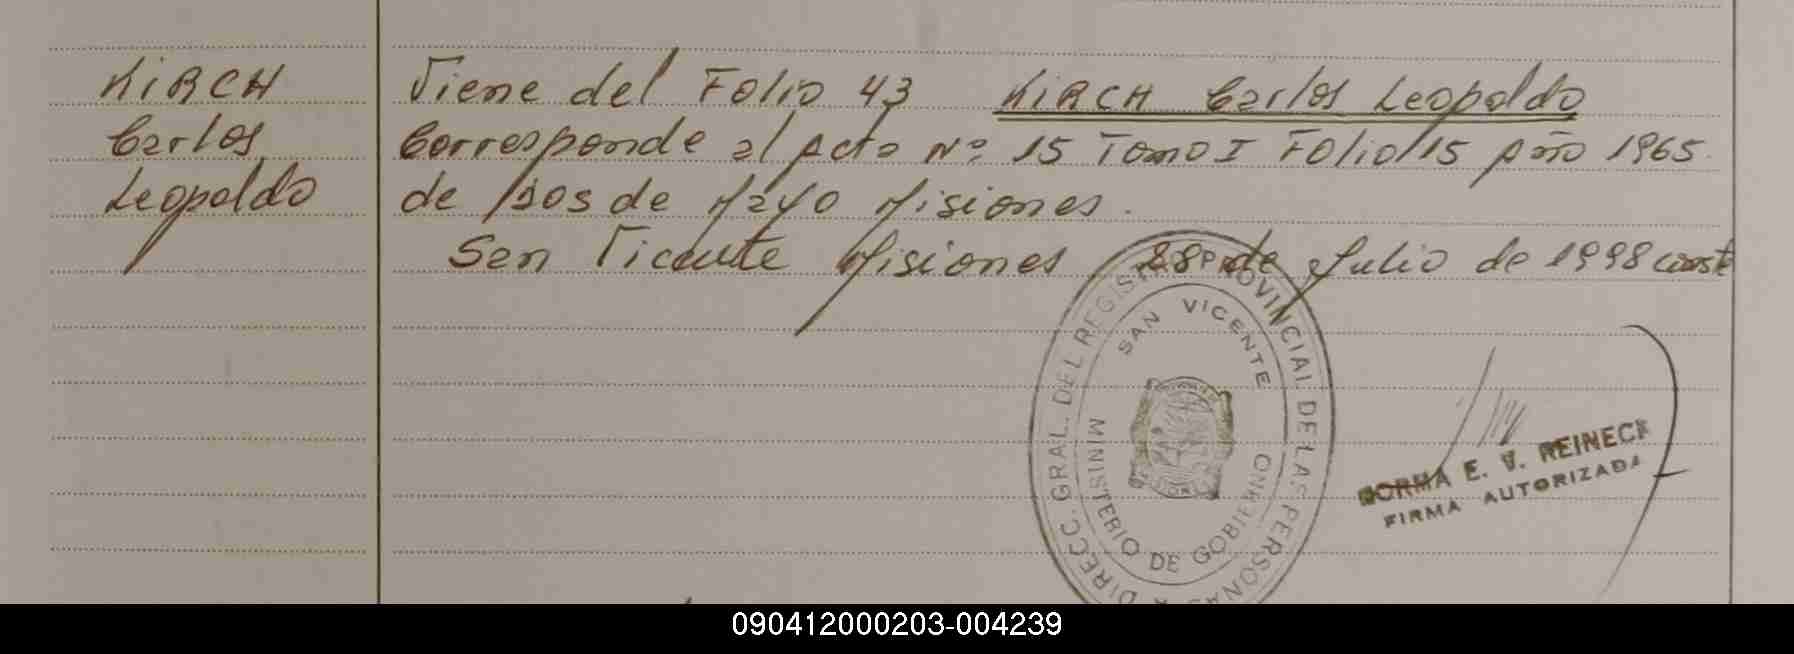 KIRCH
Carlos
Leopoldo
Viene del Folio 43 KIRCH Carlos Leopoldo
Corresponde al Acta Nº 15 Tomo I Folio 15 Año 1965.
de Dos de Mayo Misiones.
San Vicente Misiones 28 de Julio de 1998 conste
DIRECC. GRAL. DEL REGISTRO PROVINCIAL DE LAS PERSONAS
SAN VICENTE
MINISTERIO DE GOBIERNO
NORMA E. V. REINECK
FIRMA AUTORIZADA
090412000203-004239